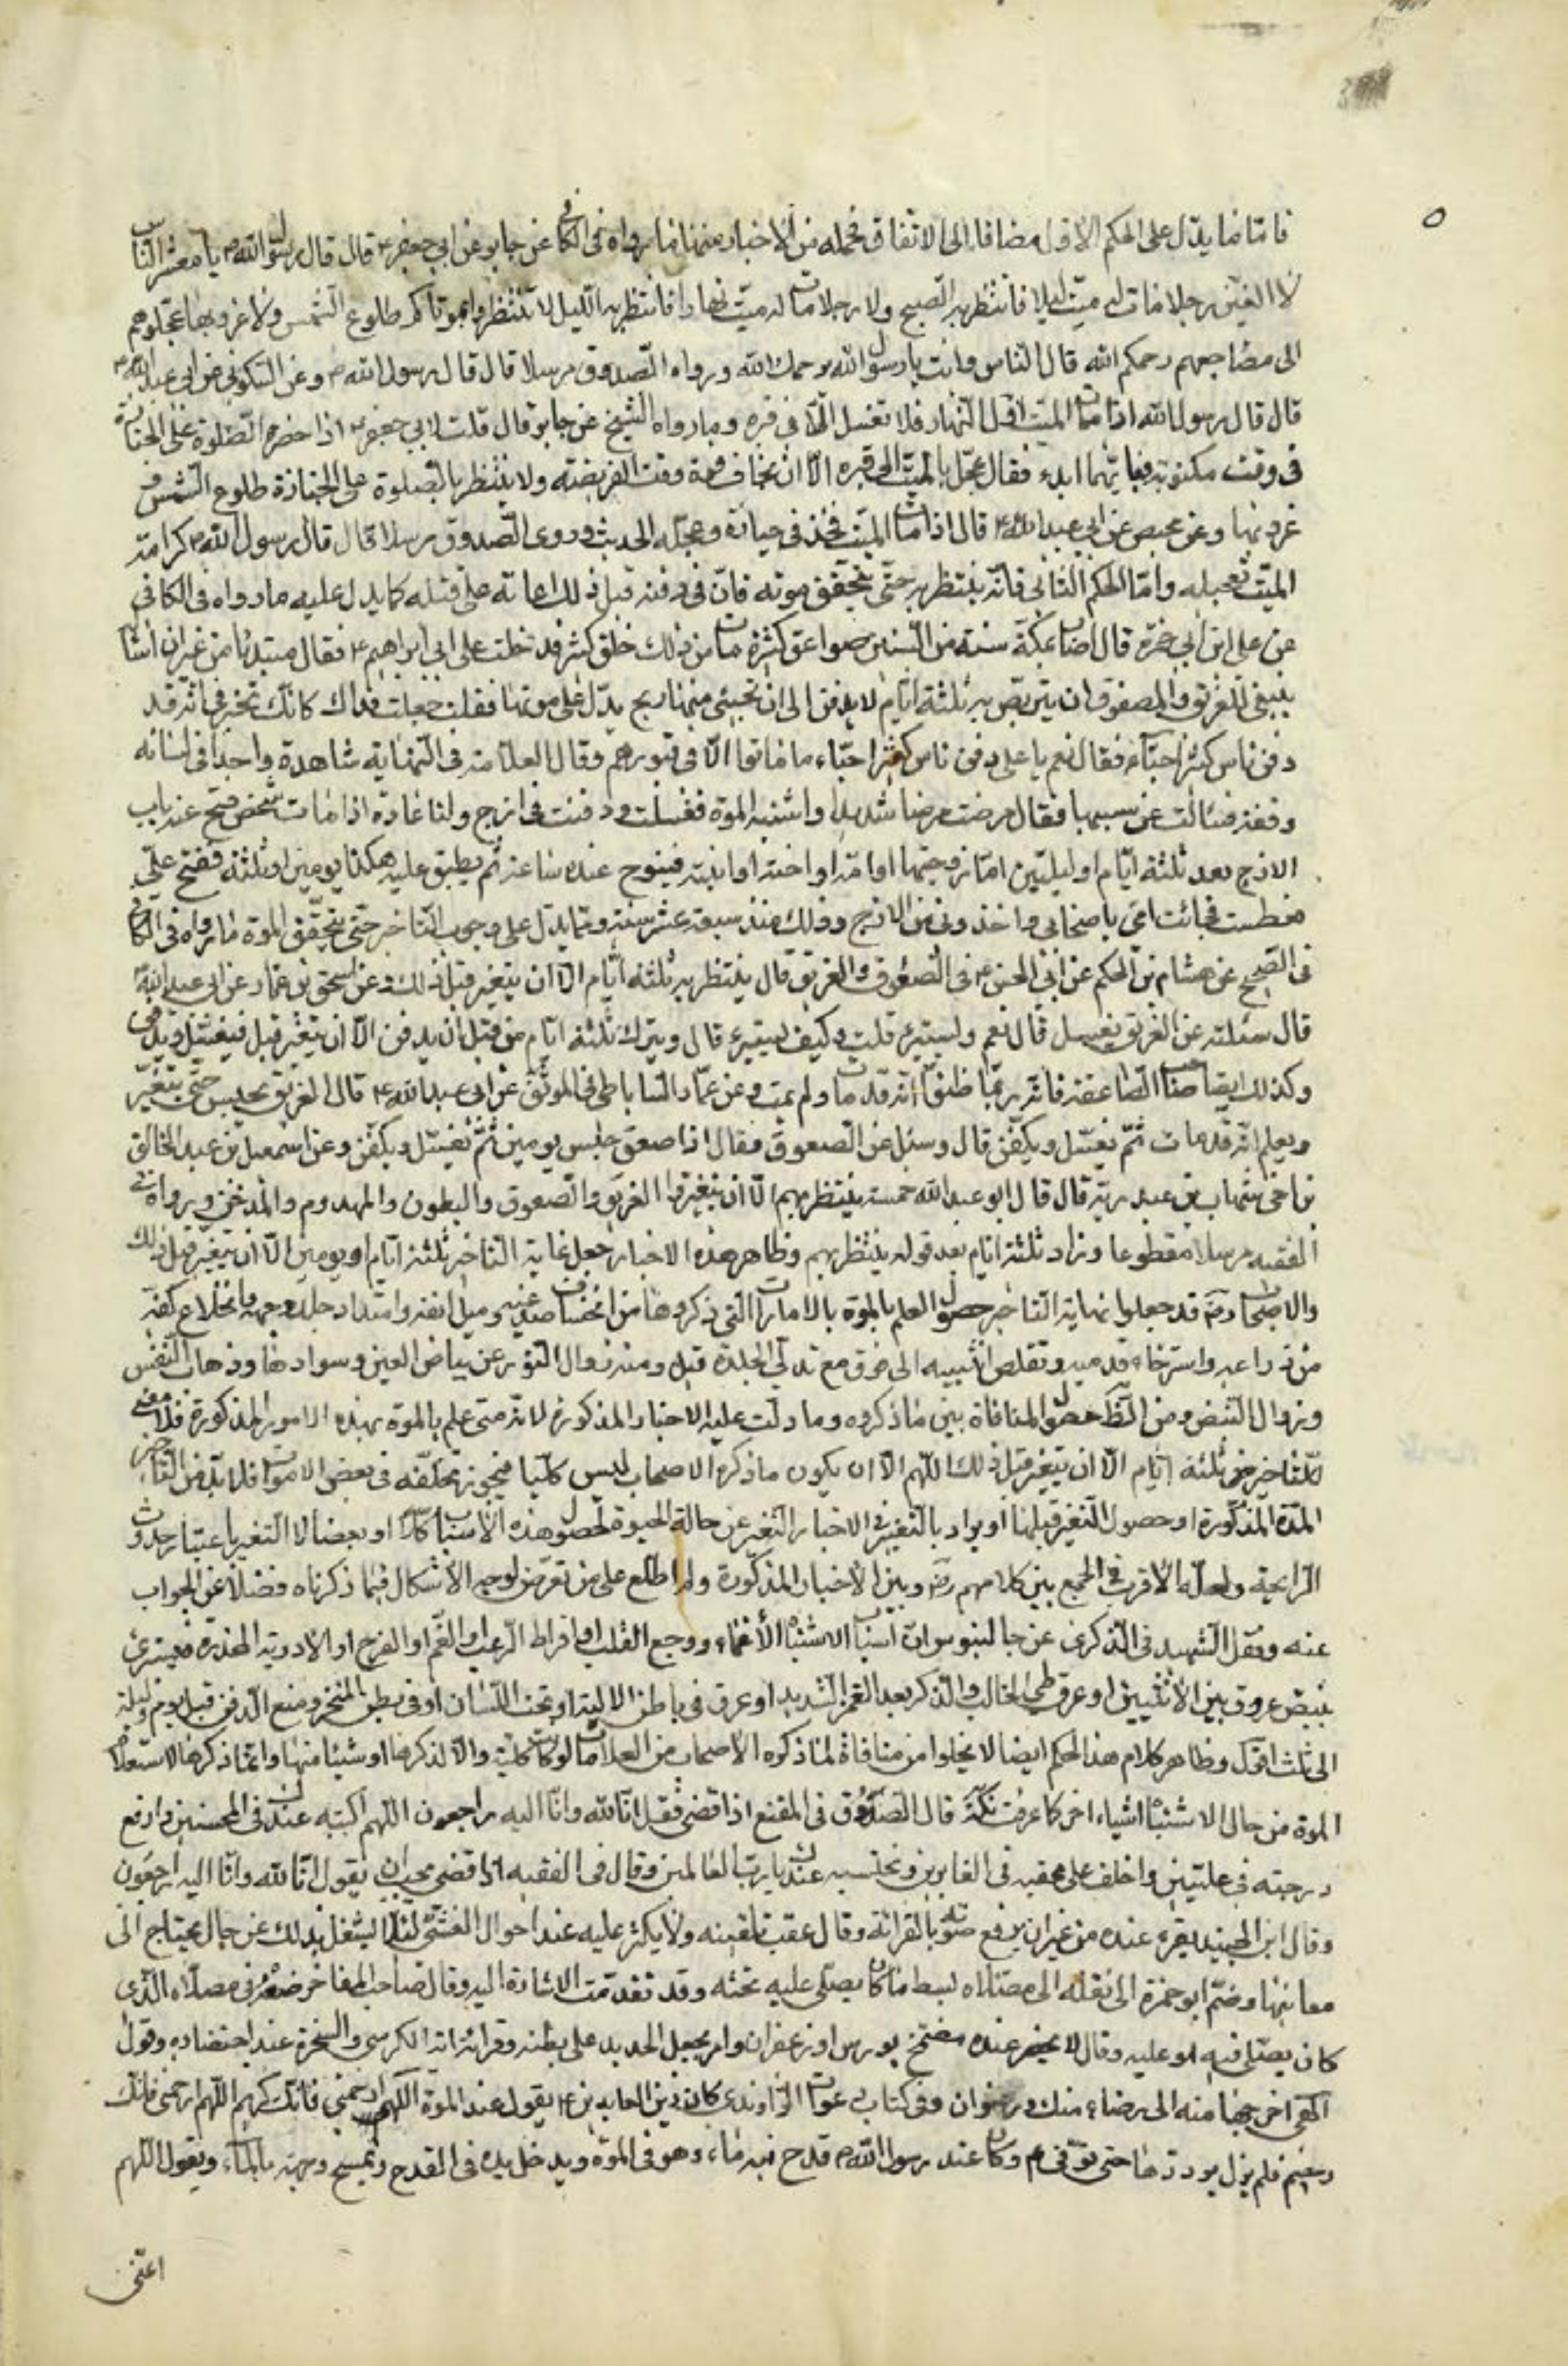 فامّا ما يدلّ على الحكم الاول مضافا الى الاتفاق فجملة من الاخبار منها ما رواه فى الكافى عن جابر عن ابي جعفر ع قال قال رسول الله ص يا معشر الناس
لا الفينّ رجلا مات له ميّت ليلا فانتظر به الصبح ولا رجلا مات له ميّت نهارا فانتظر به الليل لا تنتظروا بموتاكم طلوع الشمس ولا غروبها عجّلوا بهم
الى مضاجعهم رحمكم الله قال الناس وانت يا رسول الله يرحمك الله ورواه الصدوق مرسلا قال قال رسول الله ص وعن السكونى عن ابى عبد الله ع
قال قال رسول الله اذا مات الميت اوّل النهار فلا تغسل الّا فى قبره وما رواه الشيخ عن جابر قال قلت لابي جعفر ع اذا حضره الصلوة على الجنازة
فى وقت مكتوبة فبايّهما ابدء فقال عجّل بالميّت الى قبره الّا ان تخاف فوت وقت الفريضة ولا ينتظر بالصلوة على الجنازة طلوع الشمس و
غروبها وعن عيص عن ابى عبد الله ع قال اذا مات الميّت فخذ فى جهازه وعجّله الحديث وروى الصدوق مرسلا قال قال رسول الله ص كرامة
الميّت تعجيله وامّا الحكم الثانى فانّه ينتظر به حتّى يتحقق موته فانّ فى دفنه قبل ذلك اعانة على قتله كما يدل عليه ما رواه فى الكافي
عن على ابن ابى حمزة قال اصاب بمكّة سنة من السنين صواعق كثيرة مات من ذلك خلق كثير فدخلت على ابى ابراهيم ع فقال مبتدئا من غير ان اسأل
ينبغى للغريق والمصعوق ان يتربّص به ثلثة ايّام لا يدفن الى ان تجيئ منهما ريح يدلّ على موتهما فقلت جعلت فداك كانّك تخبرنى انّه قد
دفن ناس كثير احيآء فقال نعم يا على دفن ناس كثير احياء ما ماتوا الّا فى قبورهم وقال العلامة فى النهاية شاهدت واحدا فى لسانه
وقفة فسالت عن سببها فقال مرضت مرضا شديدا واشتبه الموت فغسلت ودفنت فى ازج ولنا عادة اذا مات شخص فتح عنه باب
الازج بعد ثلثة ايّام او ليلتين امّا زوجتها او امّه او اخته او ابنته فينوح عنده ساعة ثم يطبق عليه هكذا يومين او ثلثة ففتح علىّ
فعطست فجائت امّى باصحابى واخذونى من الازج وذلك منذ سبعة عشر سنة ومما يدلّ على وجوب التاخير حتى يتحقّق الموت ما رواه فى الكافى
فى الصحيح عن هشام بن الحكم عن ابي الحسن ع فى المصعوق والغريق قال ينتظر به ثلثة ايّام الّا ان يتغير قبل ذلك وعن اسحق بن عمّار عن ابى عبد الله ع
قال سئلته عن الغريق يغسل قال نعم ويستبرء قلت وكيف يستبرء قال ويترك ثلثة ايّام من قبل ان يدفن الّا ان يتغيّر قبل فيغسّل ويدفن
وكذلك ايضا صاحب الصاعقة فانّه ربّما ظنّوا انّه قد مات ولم يمت وعن عمّار الساباطى فى الموثّق عن ابى عبد الله ع قال الغريق يحبس حتى يتغيّر
ويعلم انّه قد مات ثمّ يغسّل ويكفّن قال وسئل عن المصعوق فقال اذا صعق حبس يومين ثمّ يغسّل ويكفّن وعن اسمعيل بن عبد الخالق
بن اخى شهاب بن عبد ربّه قال قال ابو عبد الله خمسة ينتظر بهم الّا ان يتغيّروا الغريق والمصعوق والمبطون والمهدوم والمدخّن ورواه فى
الفقيه مرسلا مقطوعا وزاد ثلثة ايّام بعد قوله ينتظر بهم وظاهر هذه الاخبار جعل غاية التاخير ثلثة ايّام او يومين الّا ان يتغيّر قبل ذلك
والاصحاب رض قد جعلوا نهاية التاخير حصول العلم بالموت بالامارات التى ذكروها من انخساف صدغيه وميل انفه وامتداد جلدة وجهه وانخلاع كفّه
من ذراعيه واسترخاء قدميه وتقلص انثييه الى فوق مع تدلّى الجلدة قيل ومنه زوال النور عن بياض العين وسوادها وذهاب النفس
وزوال النبض ومن الظ حصول المنافاة بين ما ذكروه وما دلّت عليه الاخبار المذكورة لانه متى علم بالموت بهذه الامور المذكورة فلا معنى
للتاخير من ثلثة ايّام الّا ان يتغير قبل ذلك اللّهم الّا ان يكون ما ذكره الاصحاب ليس كليّا فيجوز تخلّفه فى بعض الاموات فلا بدّ من التاخير
المدّة المذكورة او حصول التغير قبلها او يراد بالتغيير فى الاخبار التغير عن حالة الحيوة لحصول هذه الاسباب كلاّ او بعضا لا التغير باعتبار حدوث
الرايحة ولعلّه الاقرب فى الجمع بين كلامهم رض وبين الاخبار المذكورة ولم اطّلع على من تعرّض لوجه الاشكال فيما ذكرناه فضلا عن الجواب
عنه ونقل الشهيد فى الذكرى عن جالينوس انّ اسباب الاشتباه الأغماء ووجع القلب او افراط الرعب او الغم او الفرح او الادوية المخدّرة فيستبرئ
بنبض عروق بين الانثيين او عرق يلى الحالب والذكر بعد الغمز الشديد او عرق فى باطن الالية او تحت اللسان او فى بطن المنخر ومنع الدفن قبل يوم وليلة
الى ثلث اقول وظاهر كلام هذا الحكم ايضا لا يخلوا من منافاة لما ذكره الاصحاب من العلامات لو كانت كليّة والّا لذكرها او شيئا منها وانما ذكر هنا لاستعلام
الموت من حال الاشتباه اشياء اخر كما عرفت نكتة قال الصّدوق فى المقنع اذا قضى فقل انّا لله وانّا اليه راجعون اللّهم اكتبه عندك فى المحسنين وارفع
درجته فى علّيين واخلف على عقبه فى الغابرين ونحتسبه عندك يا ربّ العالمين وقال فى الفقيه اذا قضى يجب ان يقول انّا لله وانّا اليه راجعون
وقال ابن الجنيد يقرء عنده من غير ان يرفع صوته بالقرائة وقال عقيب تلقينه ولا يكثر عليه عند احوال الغشى لئلّا يشغل بذلك عن حال يحتاج الى
معاينتها وضمّ ابو حمزة الى نقله الى مصلّاه بسط ما كان يصلّى عليه تحته وقد تقدّمت الاشارة اليه وقال صاحب الفاخر ضعه فى مصلّاه الذى
كان يصلّى فيه او عليه وقال لا يحضر عنده مضمّخ بورس او زعفران وامر بجعل الحديد على بطنه وقرائة اية الكرسى والسخرة عند احتضاره وقول
اللّهم اخرجها منه الى رضاء منك ورضوان وفى كتاب دعوات الراوندى كان زين العابدين ع يقول عند الموت اللّهم ارحمنى فانّك كريم اللّهم ارحمنى فانّك
رحيم فلم يزل يرددها حتى توّفى ع وكان عند رسول الله ص قدح فيه ماء وهو فى الموت ويدخل يده فى القدح ويمسح وجهه بالماء ويقول اللّهم
اعنّى